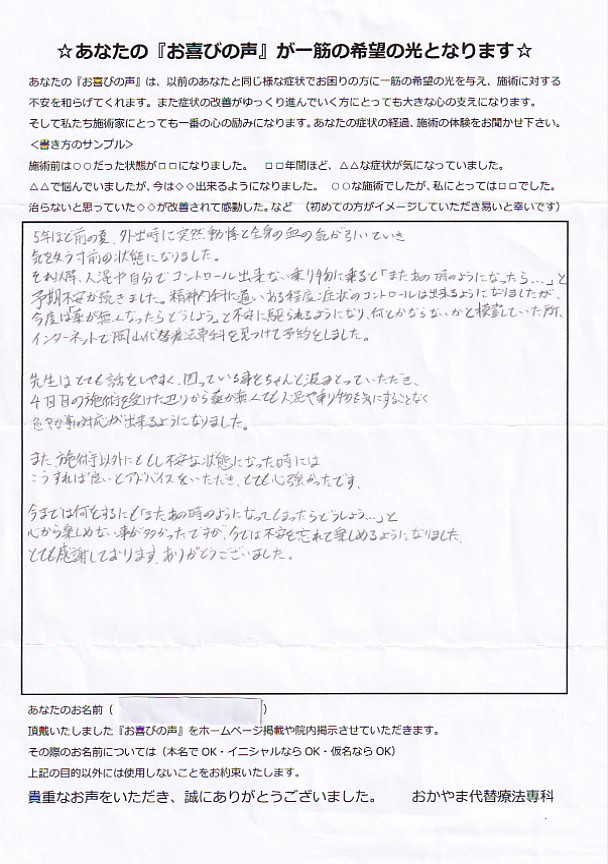 ☆あなたの『お喜びの声』が一筋の希望の光となります☆
あなたの『お喜びの声』は、以前のあなたと同じ様な症状でお困りの方に一筋の希望の光を与え、施術に対する
不安を和らげてくれます。また症状の改善がゆっくり進んでいく方にとっても大きな心の支えになります。
そして私たち施術家にとっても一番の心の励みになります。あなたの症状の経過、施術の体験をお聞かせ下さい。
＜書き方のサンプル＞
施術前は○○だった状態が□□になりました。　□□年間ほど、△△な症状が気になっていました。
△△で悩んでいましたが、今は◇◇出来るようになりました。　○○な施術でしたが、私にとっては□□でした。
治らないと思っていた◇◇が改善されて感動した。など　（初めての方がイメージしていただき易いと幸いです）
5年ほど前の夏、外出時に突然動悸と全身の血の気が引いていき
気を失う寸前の状態になりました。
それ以降、人混や自分でコントロール出来ない乗り物に乗ると「またあの時のようになったら…」と
予期不安が続きました。精神内科に通いある程度症状のコントロールは出来るようになりましたが、
今度は「薬が無くなったらどうしよう」と不安に駆られるようになり、何とかならないかと検索していた所、
インターネットで岡山代替療法専科を見つけて予約をしました。
先生はとても話をしやすく、困っている事をちゃんと汲みとっていただき、
4回目の施術を受けた辺りから薬が無くても人混や乗り物を気にすることなく
色々な事の対応が出来るようになりました。
また、施術以外にももし不安な状態になった時には
こうすれば良いとアドバイスをいただき、とても心強かったです。
今までは何をするにも「またあの時のようになってしまったらどうしよう…」と
心から楽しめない事が多かったですが、今では不安を忘れて楽しめるようになりました。
とても感謝しております。ありがとうございました。
あなたのお名前（　　　）
頂戴いたしました『お喜びの声』をホームページ掲載や院内掲示させていただきます。
その際のお名前については（本名でOK・イニシャルならOK・仮名ならOK）
上記の目的以外には使用しないことをお約束いたします。
貴重なお声をいただき、誠にありがとうございました。　　おかやま代替療法専科